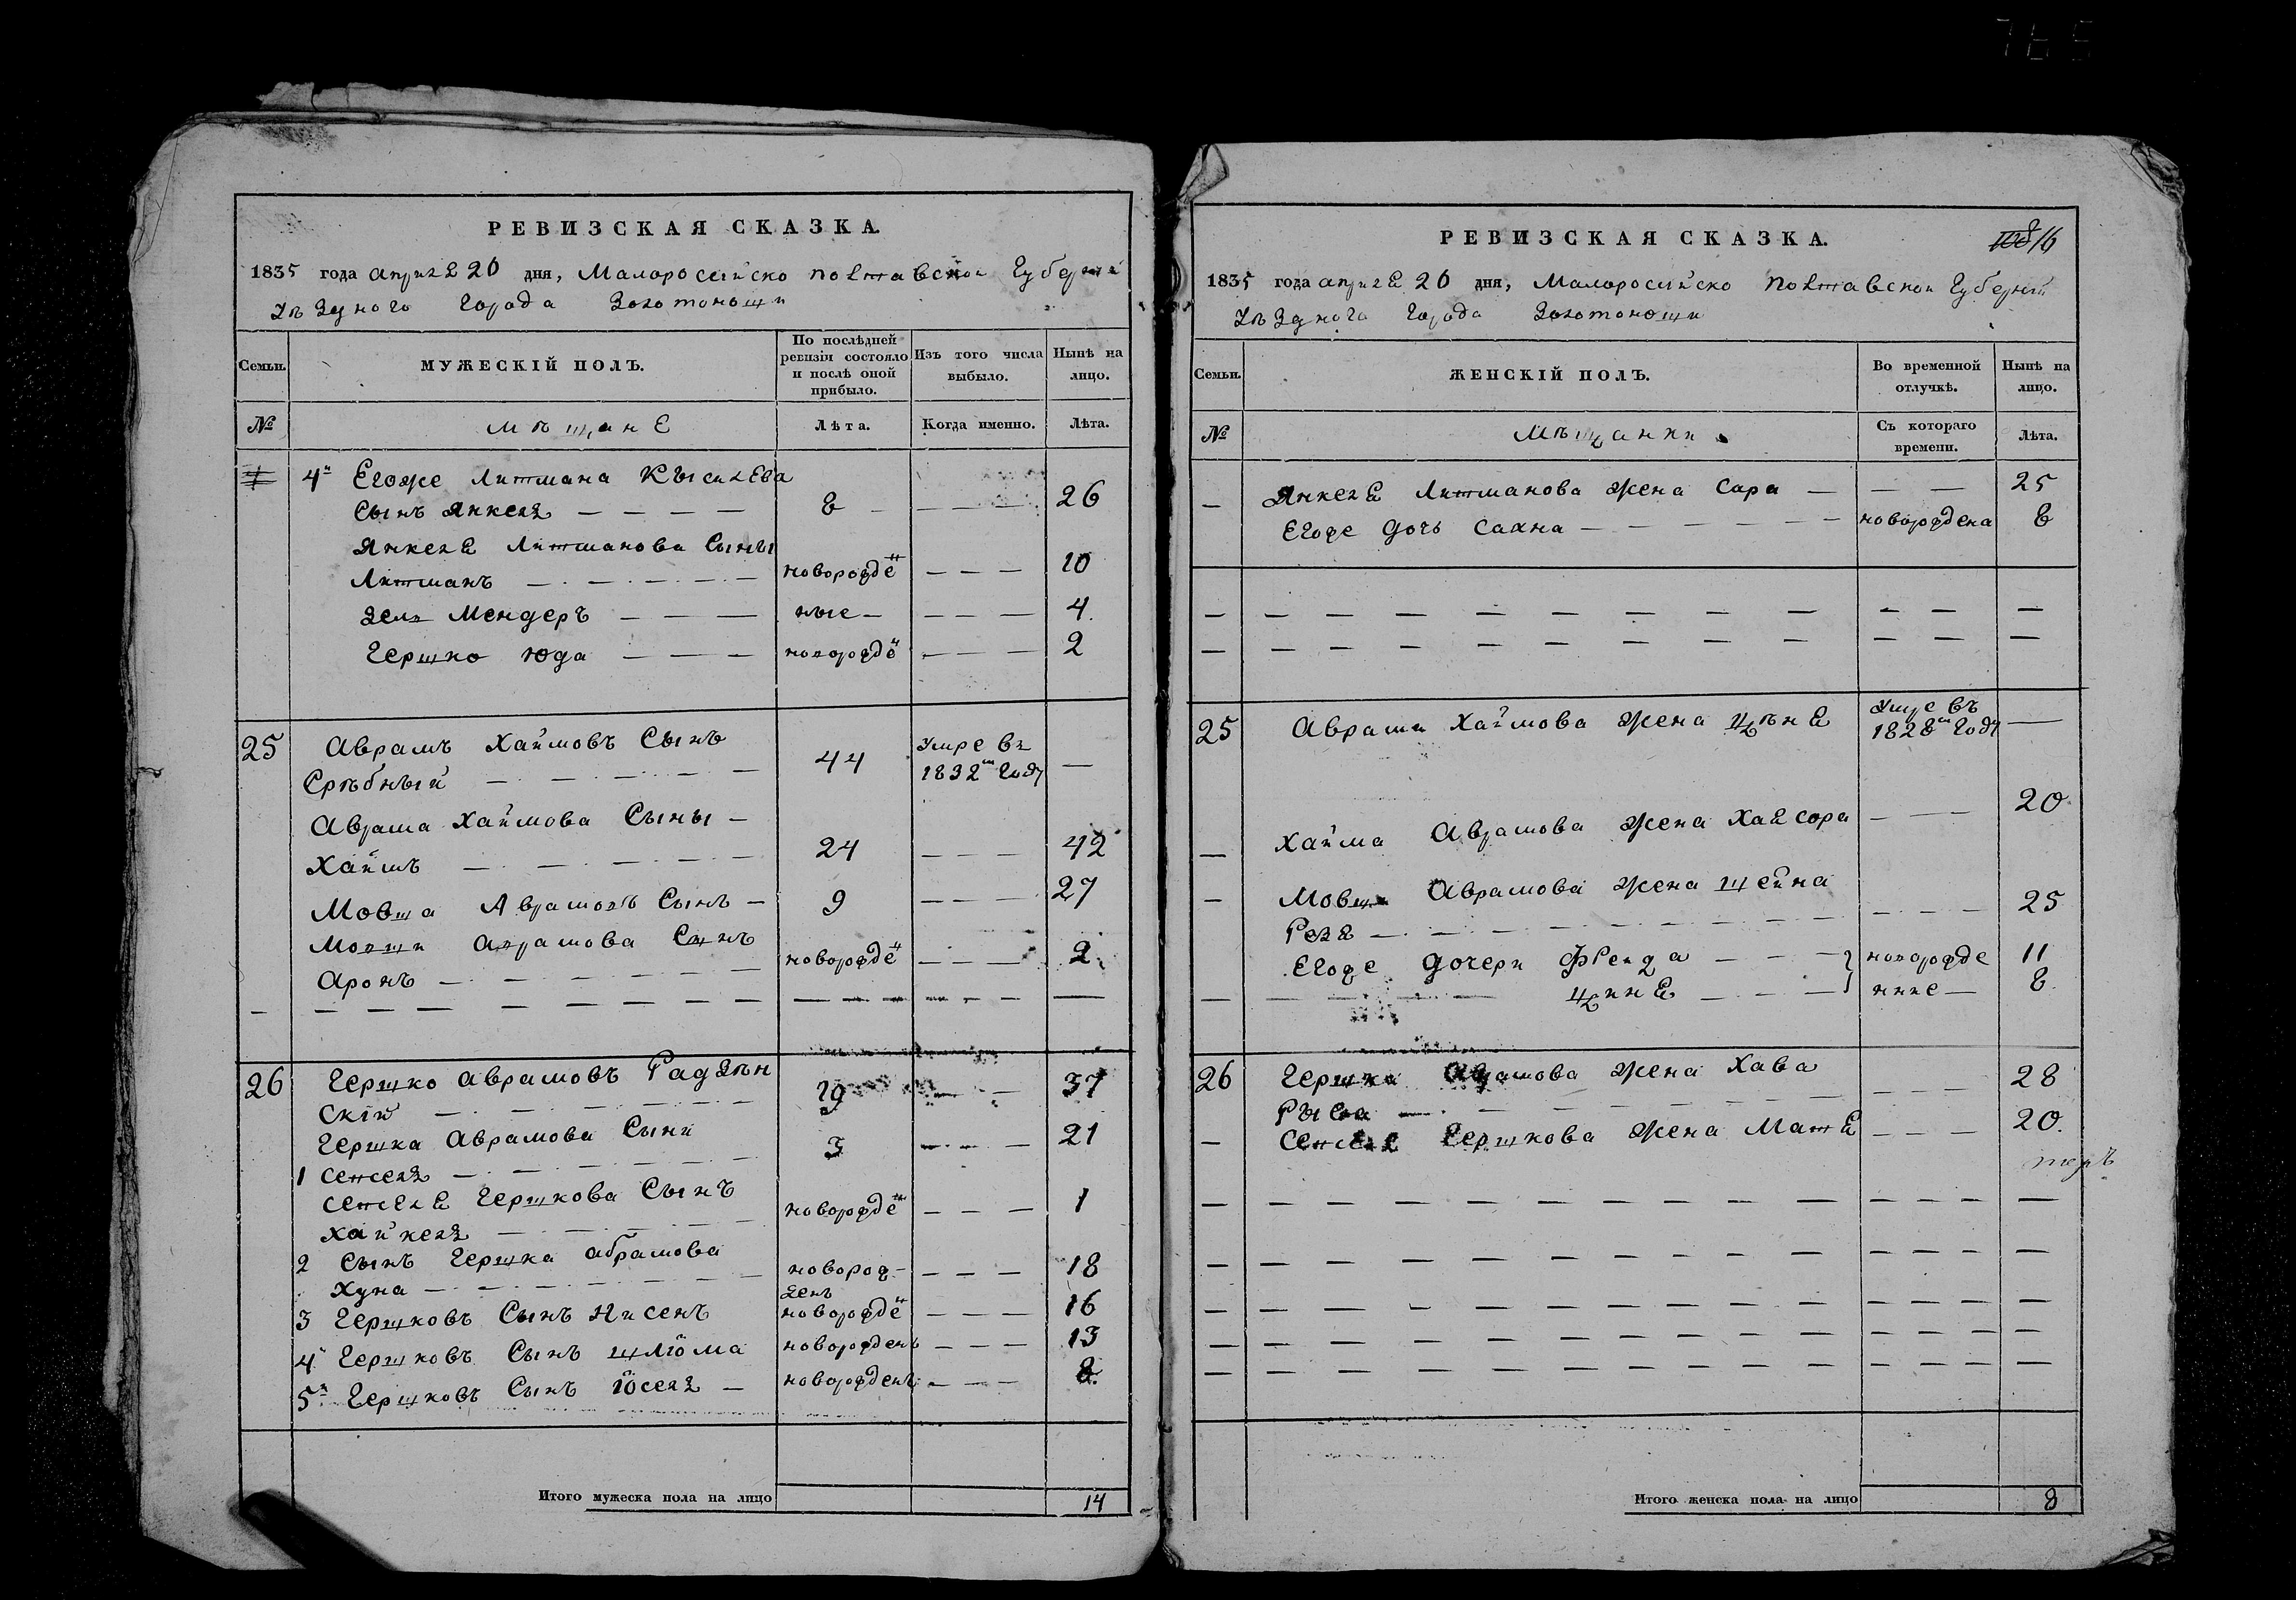 РЕВИЗСКАЯ СКАЗКА.
1835 года апреля 20 дня, Малоросийско полтавской губернии
уѣздного города Золотоноши
Семьи.
МУЖЕСКІЙ ПОЛЪ.
По послѣдней ревизіи состояло и послѣ оной прибыло.
Изъ того числа выбыло.
Нынѣ на лицо.
№
мѣщане
Лѣта.
Когда именно.
Лѣта.
4й Егоже Литмана
Сынъ Янкель — 8 — 26
Янкеля Литманова Сыны
Литманъ — новорожде — 10
Мендеръ — ные — 4
Гершко Юда — новорожде — 2
25 Аврамъ Хаймовъ Сынъ
Срѣбный — 44 Умре въ 1832м году —
Аврама Хаймова Сыны —
Хаймъ — 24 — 42
Мовша Аврамовъ Сынъ — 9 — 27
Мовши Аврамова Сынъ
Аронъ — новорожде — 2
26 Гершко Аврамовъ
скій — 19 — 37
Гершка Аврамова Сыни
1 — 3 — 21
Гершкова Сынъ
Хайкель — новорожде — 1
2 Сынъ Гершка Абрамова
Хуна — новорожденъ — 18
3 Гершковъ Сынъ Нисенъ новорожде — 16
4й Гершковъ Сынъ Шліома новорожденъ — 13
5й Гершковъ Сынъ Іосель — новорожденъ — 8
Итого мужеска пола на лицо 14
РЕВИЗСКАЯ СКАЗКА.
16
1835 года апреля 20 дня, Малоросийско Полтавской губерніи
уѣздного города Золотоноши
Семьи.
ЖЕНСКІЙ ПОЛЪ.
Во временной отлучкѣ.
Нынѣ на лицо.
№
Мѣщанки
Съ котораго времени.
Лѣта.
— Янкеля Литманова жена Сара — — — 25
Егоже дочь Сахна — новорождена 8
25 Аврама Хаймова жена Цѣня Умре въ 1828м году —
— Хайма Аврамова жена Хаясора — 20
— Мовши Аврамова жена Шейна
Резя — 25
Егоже дочери Фрейда — новорожде 11
— Циня — ние — 8
26 Гершка Аврамова жена Хава
Рыва — 28
— Гершкова жена Матя — 20
Итого женска пола на лицо 8